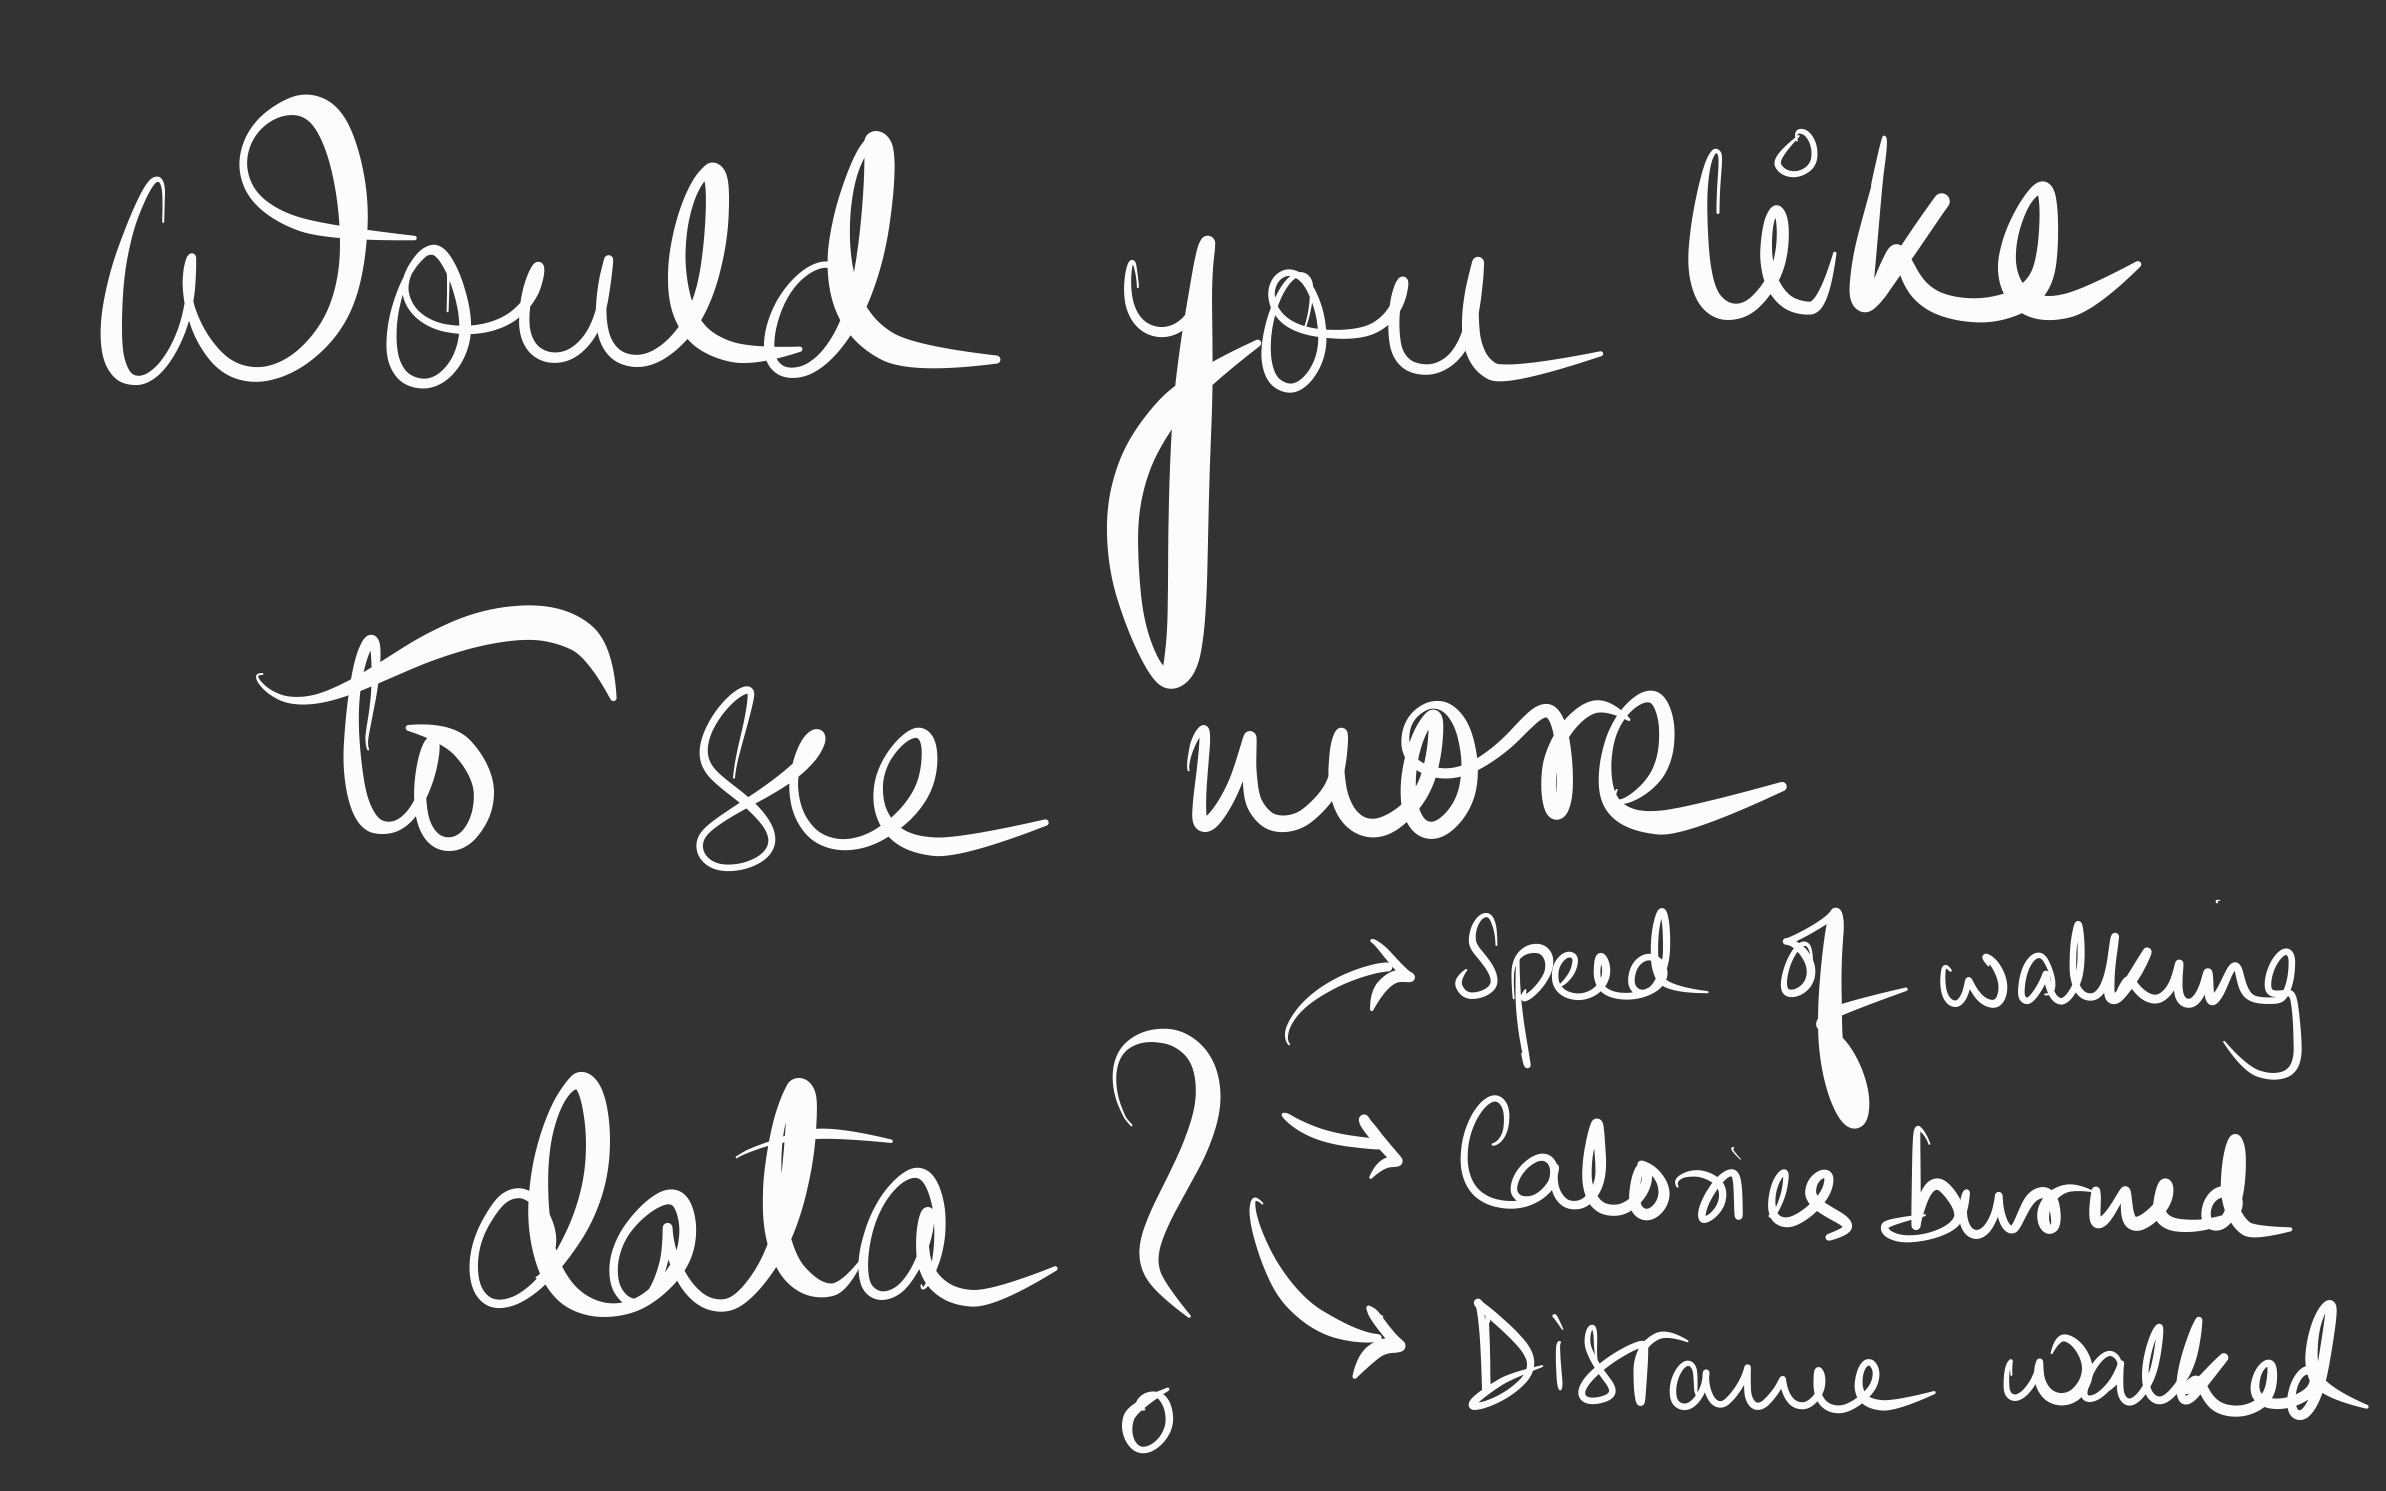 Would you like
to see more
data ?
Speed of walking
Calories burned
Distance walked